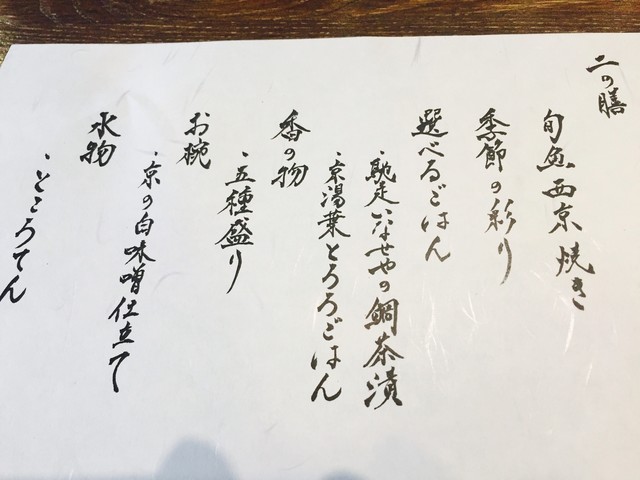 二の膳
旬魚西京焼き
季節の彩り
選べるごはん
・馳走いなせやの鯛茶漬
・京湯葉とろろごはん
香の物
・五種盛り
お椀
・京の白味噌仕立て
水物
・ところてん